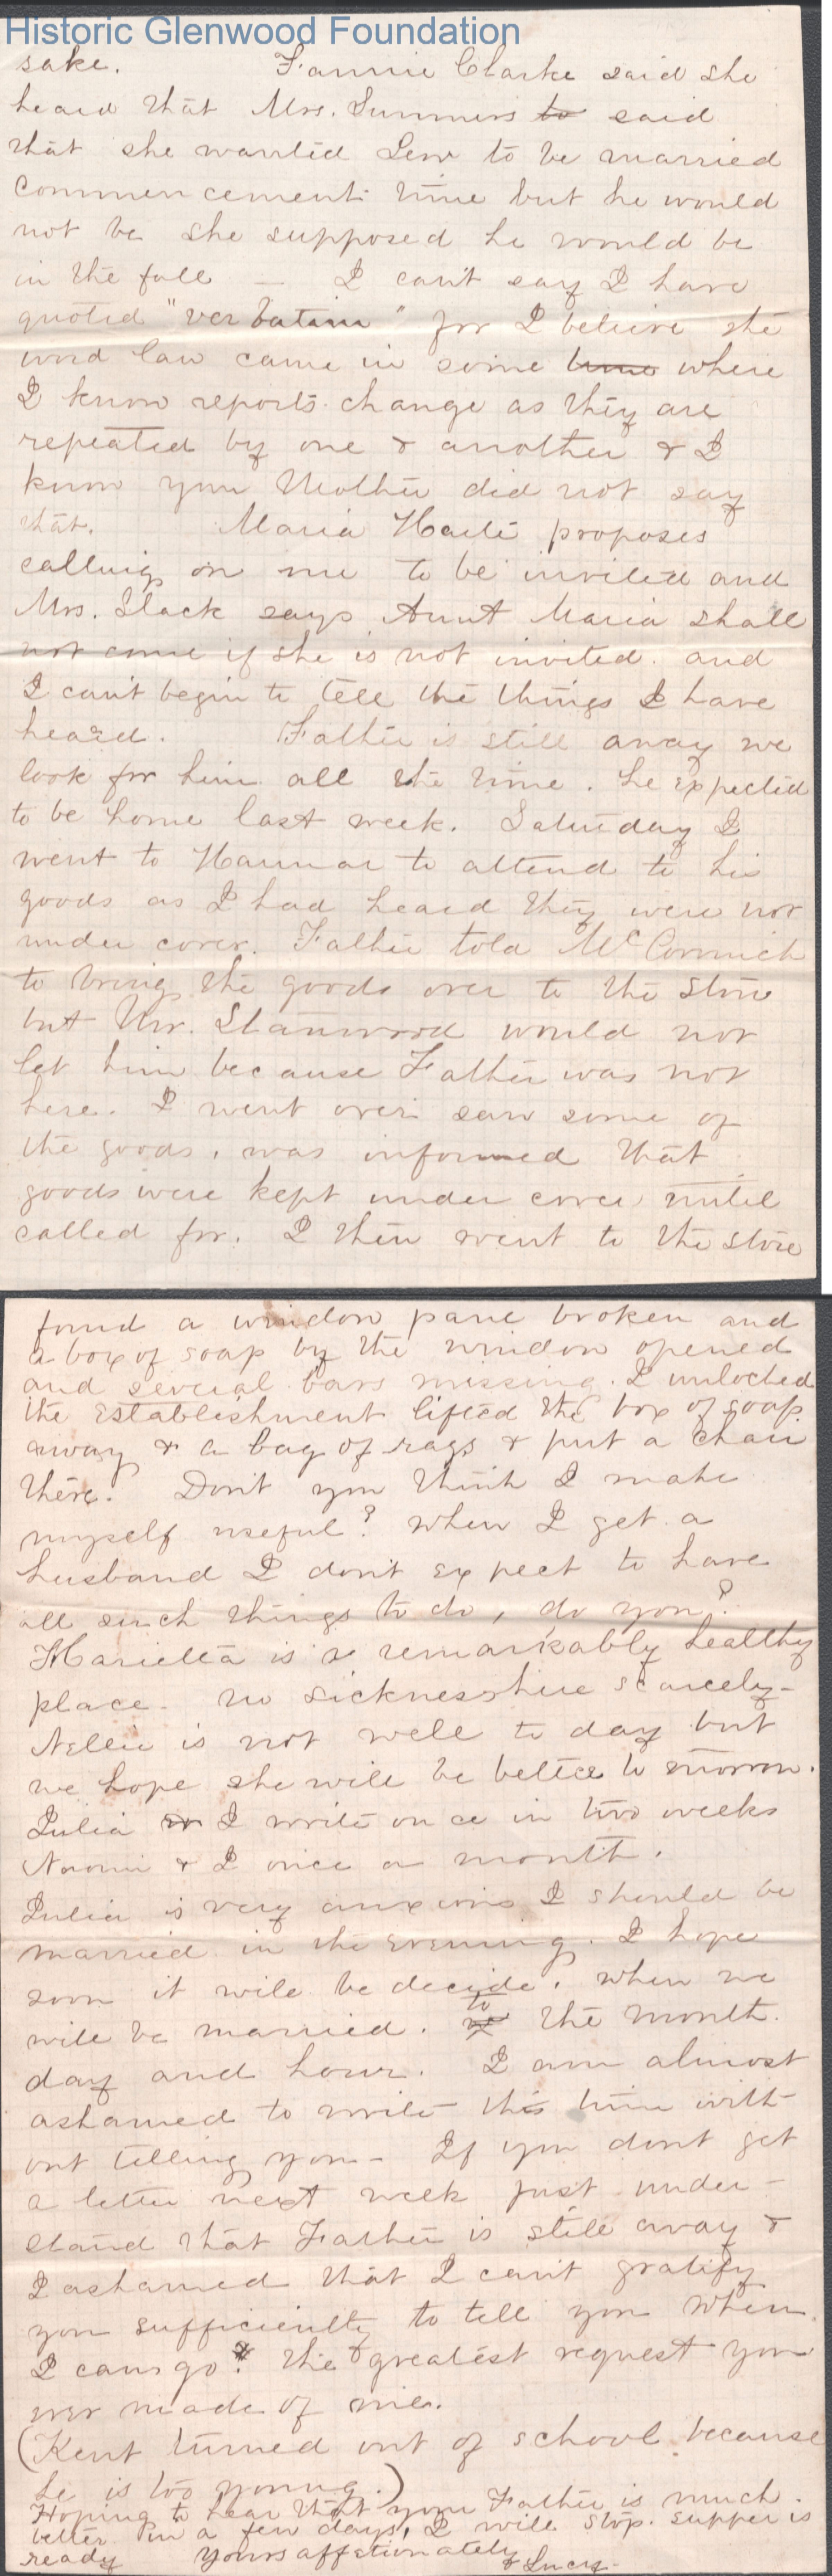 Historic Glenwood Foundation
sake. Fannie Clarke said she
heard that Mrs. Summers to said
that she wanted Lew to be married
commencement time but he would
not be she supposed he would be
in the fall — I can't say I have
quoted "verbatim" for I believe the
word law came in some time where
I know reports change as they are
repeated by one & another & I
know your Mother did not say
that. Maria Harte proposes
calling on me to be invited and
Mrs. Slack says Aunt Maria shall
not come if she is not invited. and
I can't begin to tell the things I have
heard. Father is still away we
look for him all the time. he expected
to be home last week. Saturday I
went to Harmar to attend to his
goods as I had heard they were not
under cover. Father told McCormick
to bring the goods over to the store
but Mr. Stanwood would not
let him because Father was not
here. I went over saw some of
the goods, was informed that
goods were kept under cover until
called for. I then went to the store
found a window pane broken and
a box of soap by the window opened
and several bars missing. I unlocked
the establishment lifted the box of soap
away & a bag of rags & put a chair
there. Don't you think I make
myself useful? When I get a
husband I don't expect to have
all such things to do, do you?
Marietta is a remarkably healthy
place. no sickness here scarcely—
Nellie is not well to day but
we hope she will be better to morrow.
Julia & I write once in two weeks
Naomi & I once a month.
Julia is very anxious I should be
married in the evening. I hope
soon it will be decide. when we
will be married. to the month.
day and hour. I am almost
ashamed to write this time with
out telling you— If you dont get
a letter next week just under—
stand that Father is still away &
I ashamed that I can't gratify
you sufficiently to tell you when
I can go? the greatest request you
ever made of me.
(Kent turned out of school because
he is too young.)
Hoping to hear that your Father is much
better in a few days, I will stop. supper is
ready Yours affetionately Lucy-